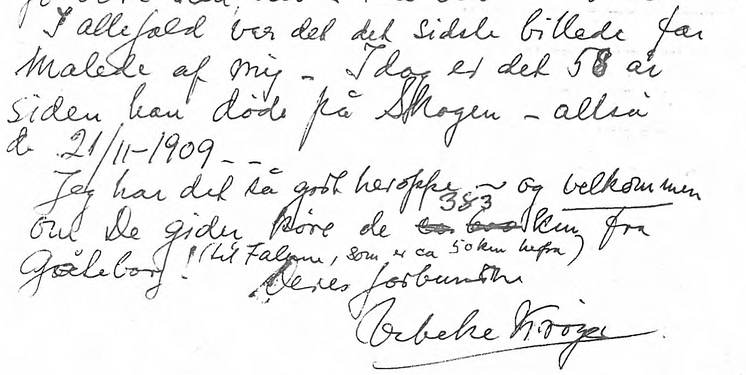 I allefald var det det sidste billede far
malede af mig – Idag er det 58 år
siden han døde på Skagen – altså
d. 21/11-1909 – –
Jeg har det så godt heroppe – og velkommen
om De gider køre de 383 km fra
Gøteborg! (til Falun, som er ca 50 km herfra)
Deres forbundne
Vibeke Krøyer